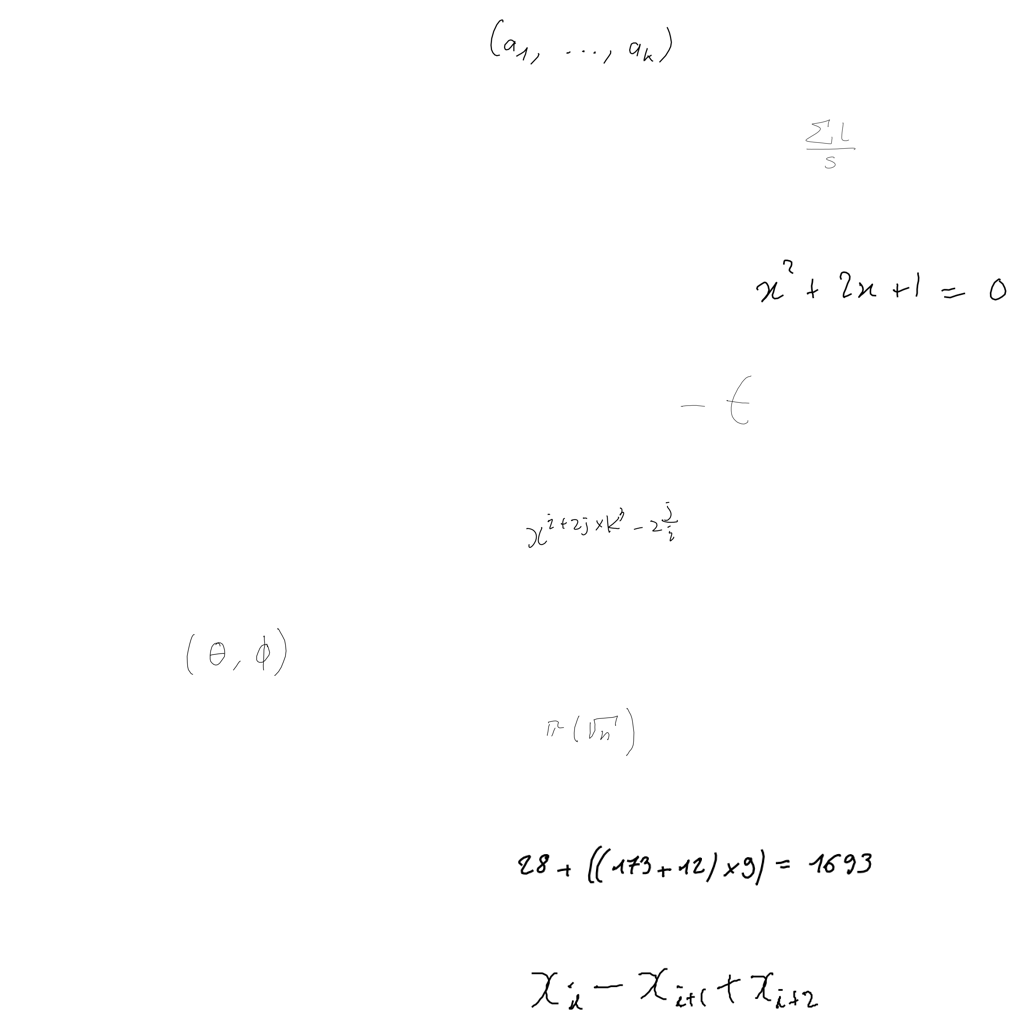 (a_1, ..., a_k)
\frac{\sum L}{s}
x^2 + 2x + 1 = 0
- t
x^{i+2j \times k^3 - 2\frac{j}{i}}
(θ, ϕ)
π(√n)
28 + ((173 + 12) × 9) = 1693
x_i - x_{i+1} + x_{i+2}